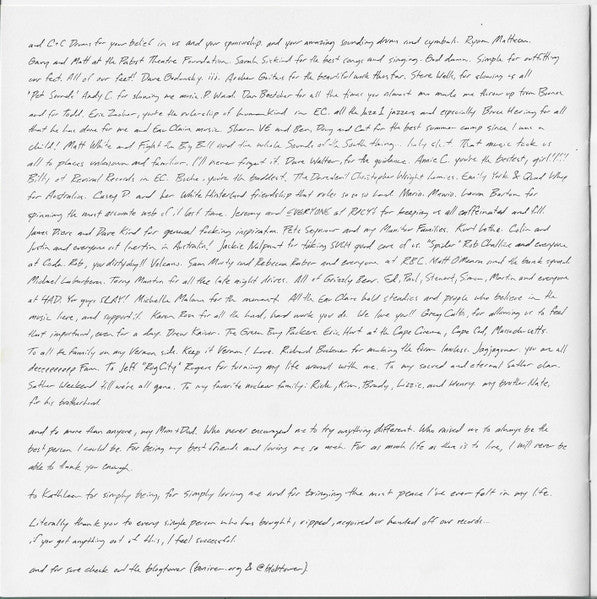 and C+C Drums for your belief in us and your sponsorship. and your amazing sounding drums and cymbals. Ryan Matteson.
Gary and Matt at the Pabst Theatre Foundation. Sarah Siskind for the best songs and singing. God damn. Simple for outfitting
our feet. All of our feet! Dave Godowsky. iii. Archer Guitars for the beautiful work thus far. Steve Wells, for showing us all
'Pet Sounds.' Andy C. for showing me music. P. Ward. Dan Boettcher for all the times you almost made me throw up
and for Todd. Eric Zacher, you're the rulership of humankind in EC. all the Jazz I jazzers and especially Bruce Hering for all
that he has done for me and Eau Claire music. Sharon VE and Ben, Doug and Cat for the best summer camp since I was a
child! Matt White and Fight the Big Bull and the whole Sounds of the South thing... holy sh_t. That music took us
all to places unknown and familiar. I'll never forget it. Dave Walter, for the guidance. Annie C. you're the bestest, girl!?!?
Billy at Revival Records in EC. Boche. you're the baddest. The Daredevil Christopher Wright homies. Emily York & Quad Whip
for Australia. Casey D and her White Hinterland friendship that rules so so so hard. Mario. Mowio. Laura Barton for
spinning the most accurate web of it last time. Jeremy and EVERYONE at RACY'S for keeping us all caffeinated and full.
James Diers and Dave Kind for general fucking inspiration. Pete Seymour and my Manitor Families. Kurt Vothe. Colin and
Justin and everyone at Inertia in Australia! Jackie Nalpant for taking SUCH good care of us. "Spider" Rob Challice and everyone
at Coda. Rob, you dirtydog!! Volcano. Sam Morty and Rebecca Raber and everyone at RBC. Matt O'Meara and the bank squad.
Michael Lieberman. Tommy Manton for all the late night drives. All of Grizzly Bear. Ed, Paul, Stewart, Simon, Martin and everyone
at 4AD. You guys SLAY! Michelle Malone for the moment. All the Eau Claire hold steadies and people who believe in the
music here, and support it. Karen Rose for all the hard, hard work you do. We love you!! Greg Calbi, for allowing us to feel
that important, even for a day. Drew Kaiser. The Green Bay Packers. Eric Hart at the Cape Cinema, Cape Cod, Massachusetts.
To all the family on my Vernon side. Keep it Vernon! Love. Richard Buckner for making the form lawless. Jagjaguwar. you are all
deeeeeeeep Fam. To Jeff "RogCity" Rogers for turning my life around with me. To my sacred and eternal Sather clan.
Sather Weekend till we're all gone. To my favorite nuclear family: Rick, Kim, Brady, Lizzie, and Henry. my brother Nate,
for his brotherhood.
and to more than anyone, my Mom+Dad. Who never encouraged me to try anything different. Who raised me to always be the
best person I could be. For being my best friends and loving me so much. For as much life as there is to live, I will never be
able to thank you enough.
to Kathleen for simply being, for simply loving me and for bringing the most peace I've ever felt in my life.
Literally thank you to every single person who has bought, ripped, acquired or handed off our records...
if you got anything out of this, I feel successful.
and for sure check out the blogtower (boniver.org & @blobtower).